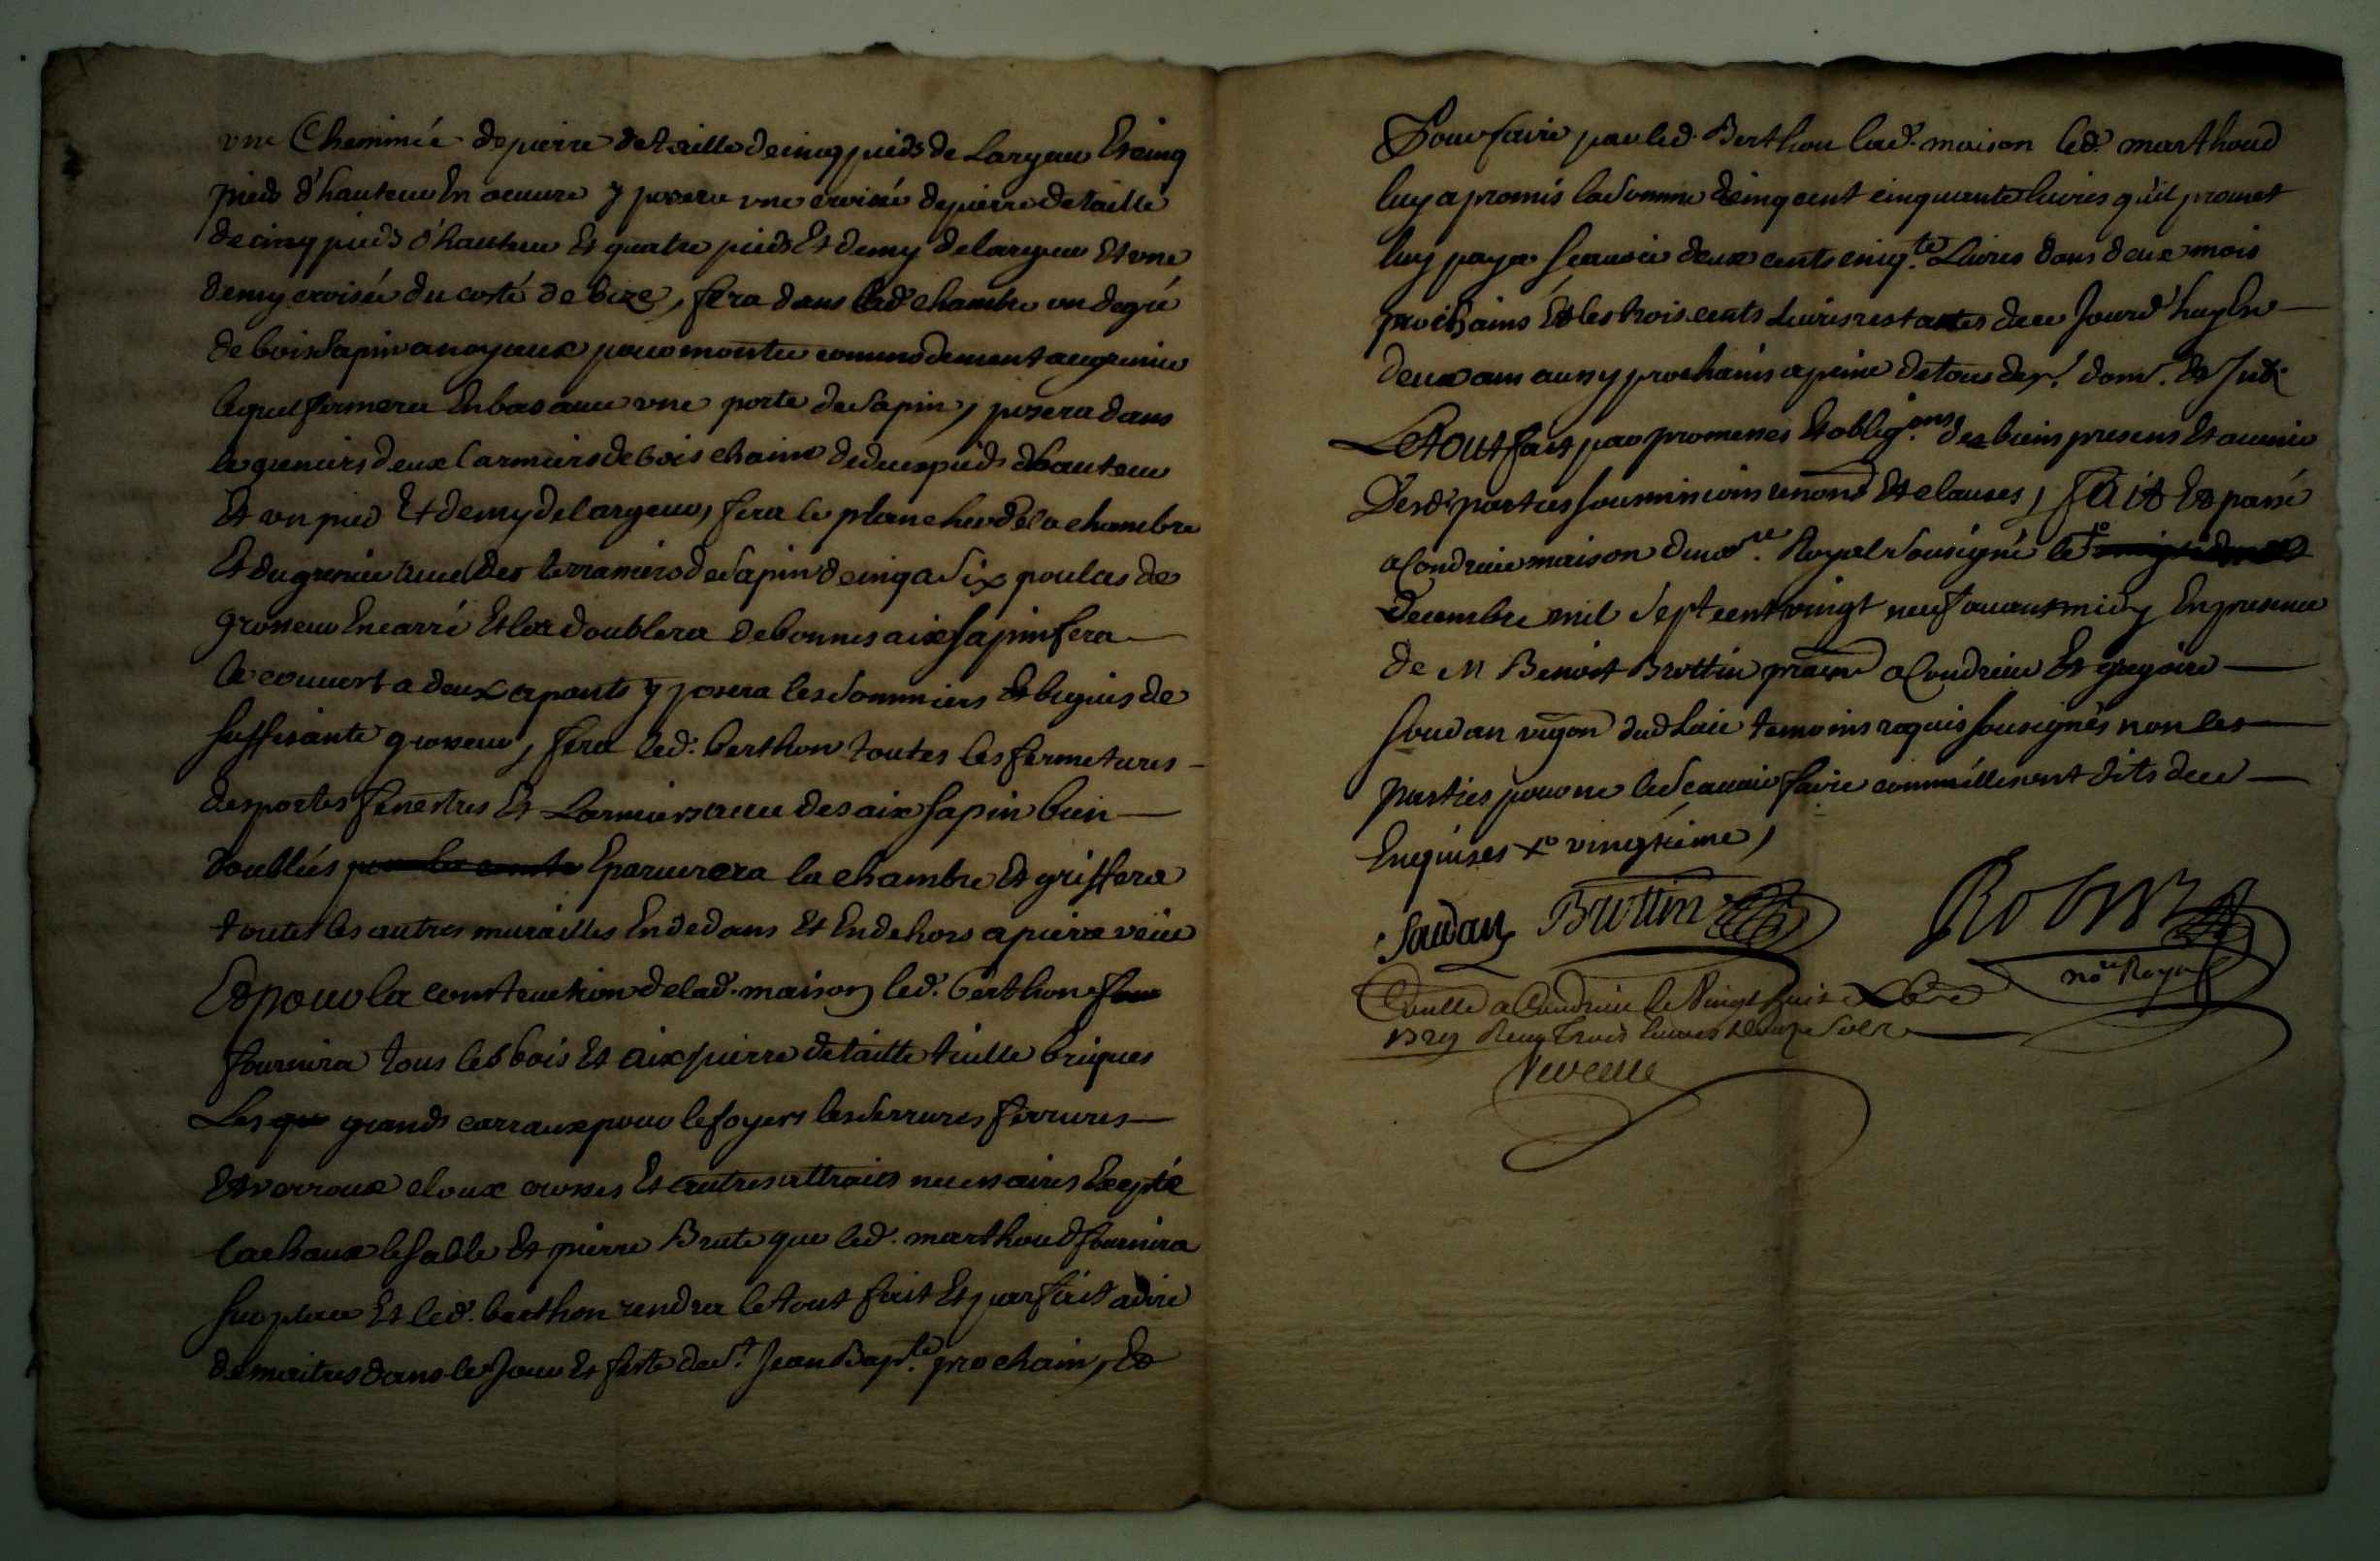 une Cheminée de pierre de taille de cinq pieds de Largeur Et cinq
pieds d'hauteur En oeuvre y posera une croisée de pierre de taille
de cinq pieds d'hauteur Et quatre pieds Et demy de largeur Et une
demy croisée du costé de bize, fera dans lad. chambre un degré
de bois sapin a noyaux pour monter commodement au grenier
lequel fermera En bas avec une porte de sapin, posera dans
le greniers deux Larmiers de bois chaine de deux pieds d'hauteur
Et un pied Et demy de largeur, fera le plancher de la chambre
Et du grenier avec des terramiers de sapin de cinq a six poulces de
grosseur En carré Et les doublera de bonnes aix sapin fera
le couvert a deux apants y posera les sommiers Et
suffisante grosseur, fera led. berthon toutes les fermetures
des portes fenestres Et Larmiers avec des aix sapin bien
doublées Eparverera la chambre Et griffera
toutes les autres murailles En dedans Et En dehors a pierre veüe
Et pour la construction de lad. maison led. berthon
fournira tous les bois Et aix pierre de taille tuille briques
Les grands carraux pour le foyers les serrures ferrures
Et verroux cloux crosses Et autres attraits necessaires Excepté
la chaux le sable Et pierre Brute que led. marthoud fournira
sur place Et led. berthon rendra le tout fait Et parfait a dire
de maitres dans le Jour Et feste de st. Jean Bapte. prochain, Et
Pour faire par led. Berthon lad. maison led. marthoud
luy a promis la somme de cinq cent cinquante livres qu'il promet
luy payer scavoir deux cents cinqte. Livres dans deux mois
prochains Et les trois cents Livres restantes de ce Jourd'huy En
deux ans aussy prochains a peine de tous dep. dom. Et
Le tout fait par promesses Et oblig.ons des biens presens Et avenir
Desd. parties soumissions renond Et clauses, fait Et passé
a Condrieu maison du nore. Royal sousigné le
Decembre mil sept cent vingt neuf avant midy En presence
de M Benoist Brottin a Condrieu Et gregoire
Soudan vigon dud. Lieu temoins requis sousignés non les
parties pour ne le scavoir faire comm'illes ont dits de ce
Enquises xo vingtieme,
Soudan Brottin Robin
nore Royal
Conllé a Condrieu le Vingt huit Xbre
1729 Reçu trois livres douze sols